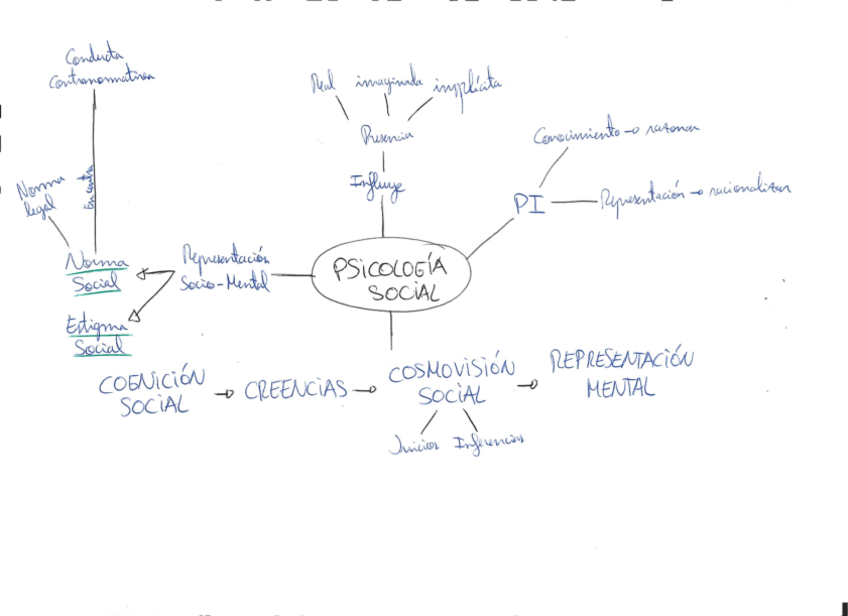 Conducta
Contranormativa
Real imaginada implícita
Presencia
Influye
Conocimiento → razonar
PI
Representación → racionalizar
Norma
legal
en contra
Norma
Social
Representación
Socio-Mental
PSICOLOGÍA
SOCIAL
Estigma
Social
COGNICIÓN
SOCIAL
→ CREENCIAS →
COSMOVISIÓN
SOCIAL
→ REPRESENTACIÓN
MENTAL
Juicios Inferencias